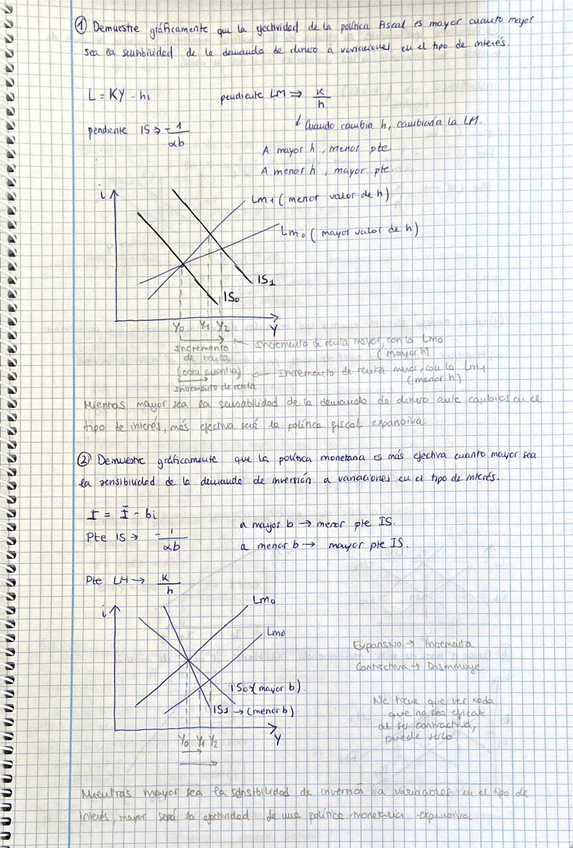 ① Demuestre gráficamente que la efectividad de la política fiscal es mayor cuanto mayor
sea la sensibilidad de la demanda de dinero a variaciones en el tipo de interés.
L = KY - hi
pendiente LM ⇒ K/h
pendiente IS ⇒ -1/αb
Cuando cambia h, cambiaría la LM.
A mayor h, menor pte
A menor h, mayor pte
i
LM1 (menor valor de h)
LM0 (mayor valor de h)
IS1
IS0
Y0 Y1 Y2
Y
Incremento de renta mayor, con la LM0
(mayor h)
Incremento
de renta
(esta cuantía)
Incremento de renta menor, con la LM1
(menor h)
Incremento de renta
Mientras mayor sea la sensibilidad de la demanda de dinero ante cambios en el
tipo de interés, más efectiva será la política fiscal expansiva
② Demuestre gráficamente que la política monetaria es más efectiva cuanto mayor sea
la sensibilidad de la demanda de inversión a variaciones en el tipo de interés.
I = Ī - bi
Pte IS → -1/αb
a mayor b → menor pte IS.
a menor b → mayor pte IS.
Pte LM → K/h
i
LM0
IS0 (mayor b)
IS1 → (menor b)
Y0 Y1 Y2
Y
Expansiva → Incrementa
Contractiva → Disminuye
No tiene que ver nada
que no sea
al ser contractiva,
puede serlo
Mientras mayor sea la sensibilidad de inversión a variaciones en el tipo de
interés, mayor será la efectividad de una política monetaria expansiva